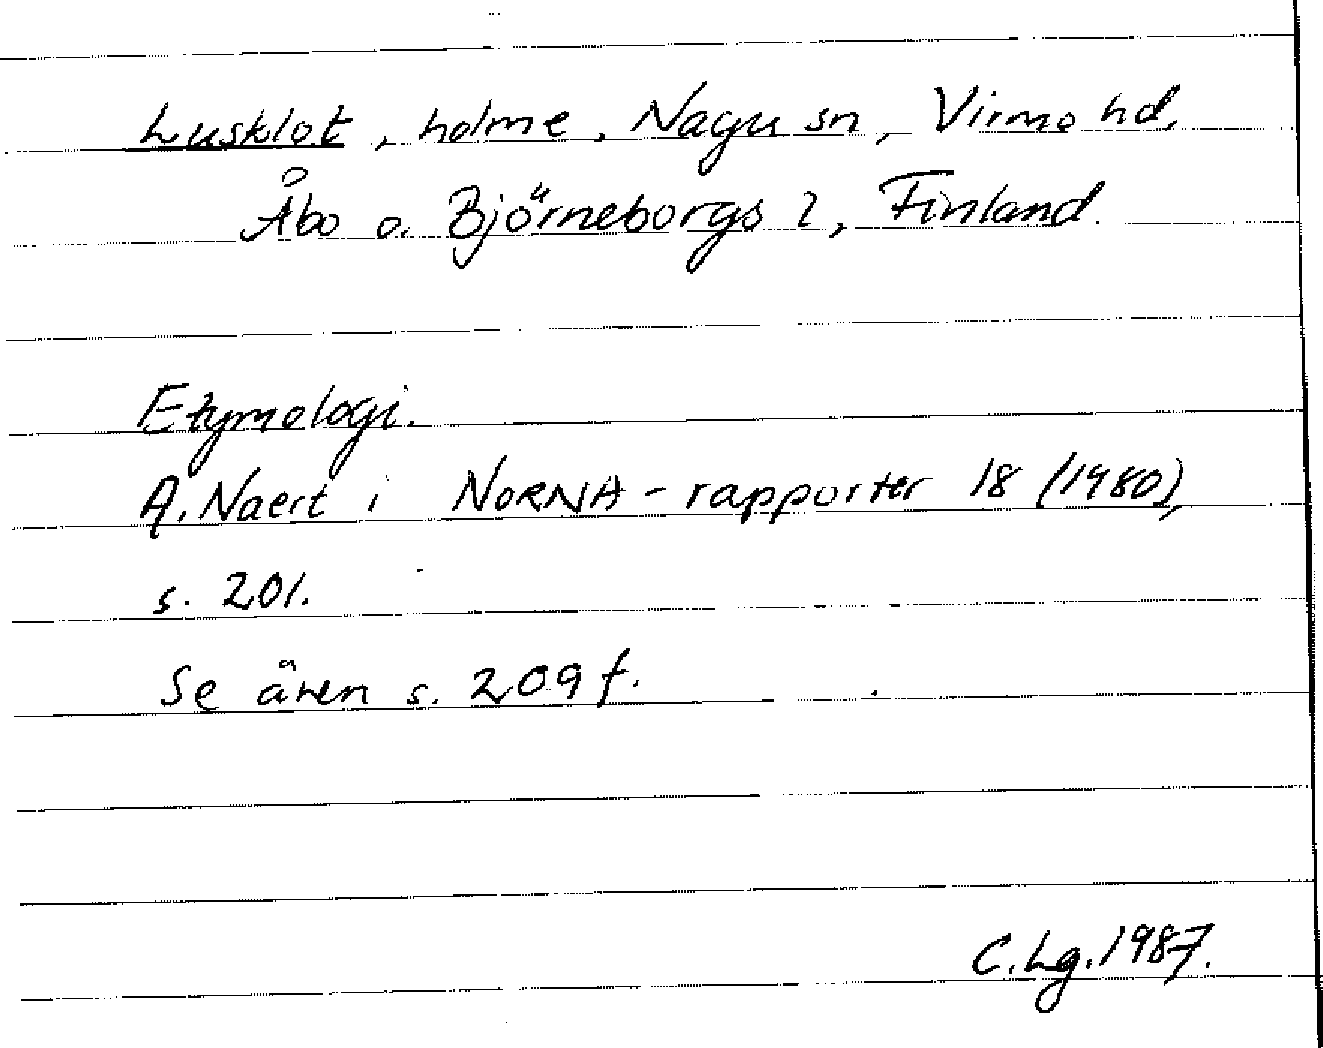 Lusklot, holme, Nagu sn, Virmo hd,
Åbo o. Björneborgs l, Finland.
Etymologi.
A. Naert i NORNA-rapporter 18 (1980),
s. 201.
Se även s. 209 f.
C. Lg. 1987.